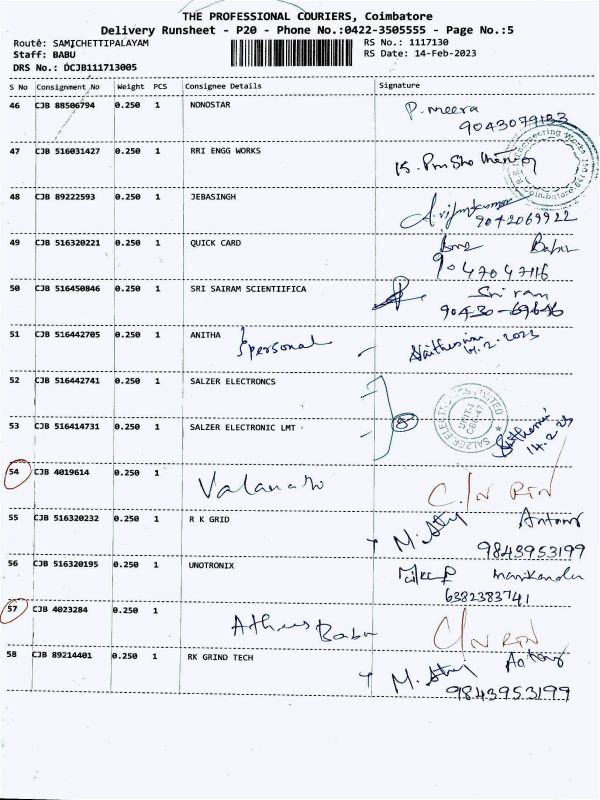 THE PROFESSIONAL COURIERS, Coimbatore
Delivery Runsheet - P20 - Phone No.:0422-3505555 - Page No.:5
Route: SAMICHETTIPALAYAM RS No.: 1117130
Staff: BABU RS Date: 14-Feb-2023
DRS No.: DCJB111713005
S No Consignment No Weight PCS Consignee Details Signature
46 CJB 88506794 0.250 1 NONOSTAR P. Meera
9043079133
47 CJB 516031427 0.250 1 RRI ENGG WORKS
48 CJB 89222593 0.250 1 JEBASINGH
9042069922
49 CJB 516320221 0.250 1 QUICK CARD Babu
9047047116
50 CJB 516450846 0.250 1 SRI SAIRAM SCIENTIIFICA Sri ram
90430-69646
51 CJB 516442705 0.250 1 ANITHA personal
14.2.2023
52 CJB 516442741 0.250 1 SALZER ELECTRONCS
SALZER ELECTRONICS LIMITED
UNIT-1
53 CJB 516414731 0.250 1 SALZER ELECTRONIC LMT
14.2.23
54 CJB 4019614 0.250 1 C/N RTN
55 CJB 516320232 0.250 1 R K GRID Antony
9843953199
56 CJB 516320195 0.250 1 UNOTRONIX Manikandan
6382383741
57 CJB 4023284 0.250 1 Babu C/N RTN
58 CJB 89214401 0.250 1 RK GRIND TECH Antony
9843953199